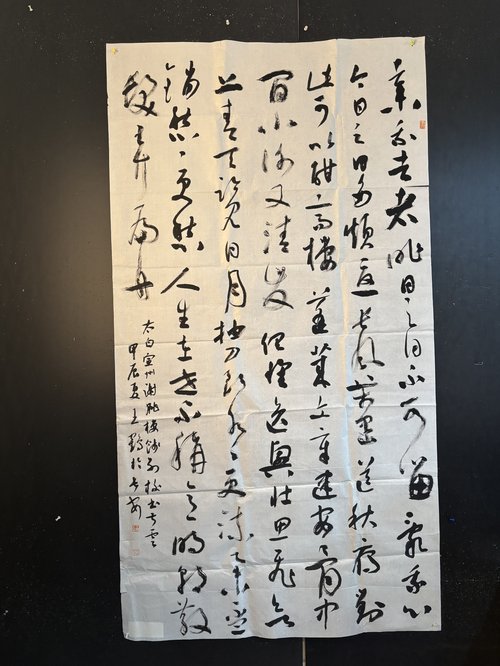 棄我去者昨日之日不可留亂我心
今日之日多煩憂長風萬里送秋雁對
此可以酣高樓蓬萊文章建安骨中
間小謝又清發俱懷逸興壯思飛欲
上青天覽日月抽刀斷水〻更流舉杯
銷愁〻更愁人生在世不稱意明朝散
髮弄扁舟
太白宣州謝朓樓餞別校書叔雲
甲辰夏王於長安